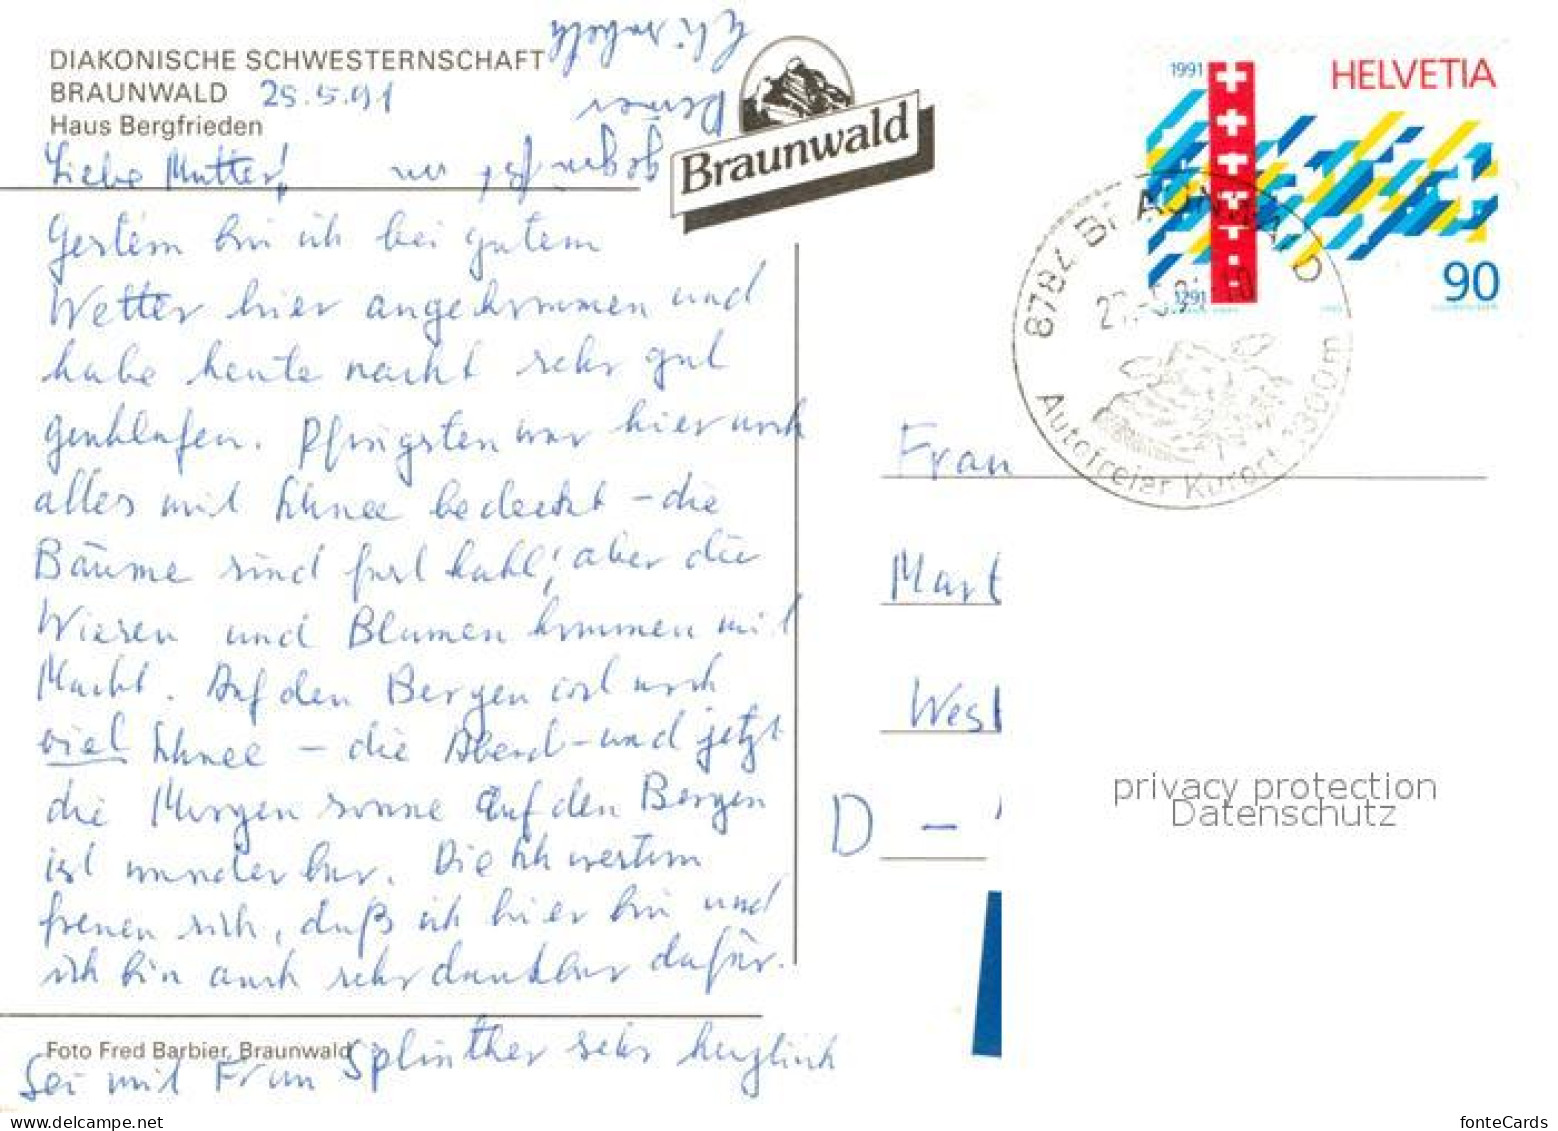 DIAKONISCHE SCHWESTERNSCHAFT
BRAUNWALD 25.5.91
Haus Bergfrieden
Liebe Mutter!
Gestern bin ich bei gutem
Wetter hier angekommen und
habe heute nacht sehr gut
geschlafen. Pfingsten war hier noch
alles mit Schnee bedeckt - die
Bäume sind fast kahl, aber die
Wiesen und Blumen kommen mit
Macht. Auf den Bergen ist noch
viel Schnee - die Abend- und jetzt
die Morgensonne auf den Bergen
ist wunderbar. Die Schwestern
freuen sich, daß ich hier bin und
ich bin auch sehr dankbar dafür.
Foto Fred Barbier, Braunwald
Sei mit Frau Splinther sehr herzlich
gegrüßt von
Deiner
Elisabeth
Braunwald
1991
HELVETIA
1291
90
8784 BRAUNWALD
Autofreier Kurort 1300m
Frau
Mart
West
D -
privacy protection
Datenschutz
www.delcampe.net
fonteCards